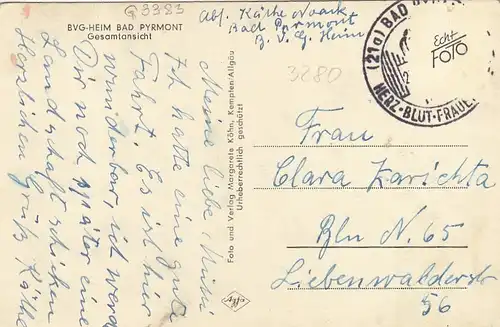 G3383
BVG-HEIM BAD PYRMONT
Gesamtansicht
Abs. Käthe Noack
Bad Pyrmont
B. V. G. Heim
3280
(21a) BAD
HERZ·BLUT·FRAUE
Echt
FOTO
Meine liebe
Ich hatte eine gute
Fahrt. Es ist hier
wunderbar, ich werde
Dir noch später eine
Landschaft schicken
Herzlichen Gruß Käthe
Foto und Verlag Margarete Köhn, Kempten/Allgäu
Urheberrechtlich geschützt
Agfa
Frau
Clara Karichta
Bln N. 65
Liebenwalderstr
56